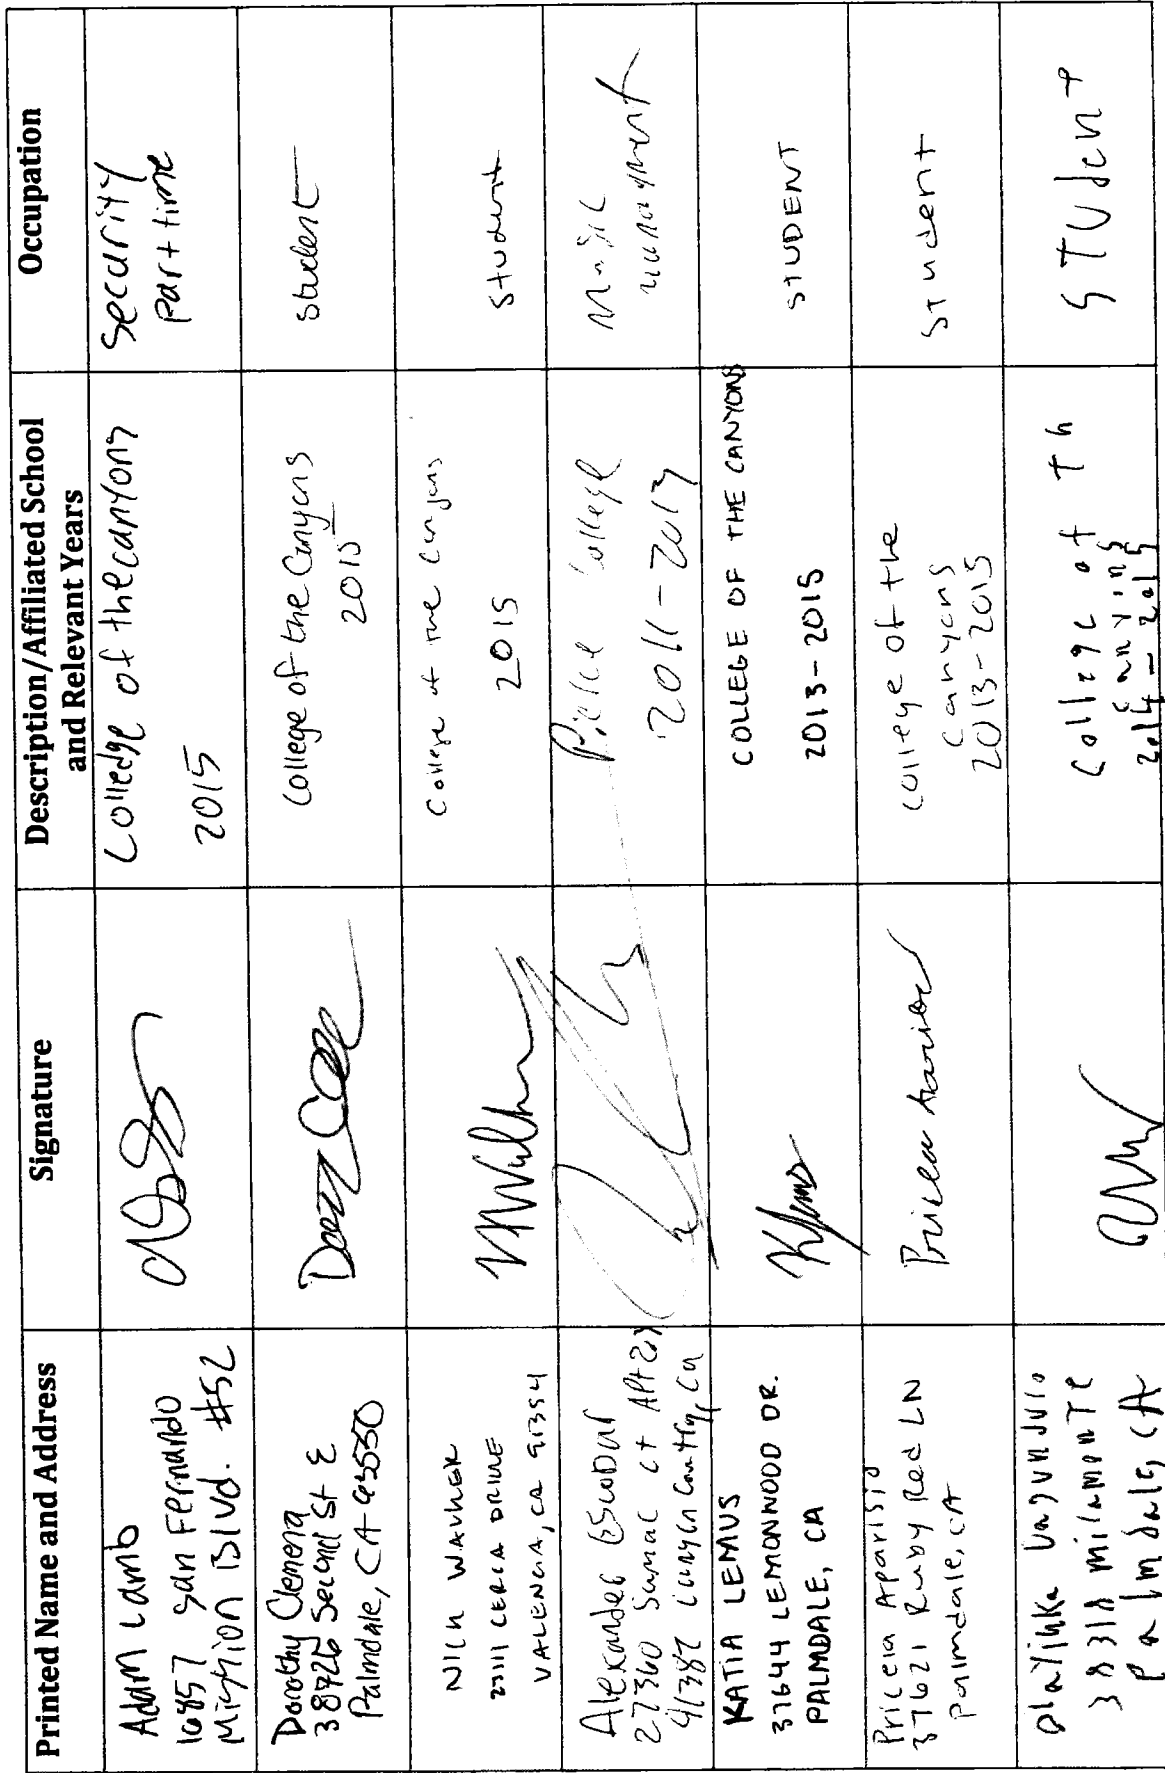 Printed Name and Address
Signature
Description/Affiliated School
and Relevant Years
Occupation
Adam Lamb
San Fernando
Mission Blvd. #52
Colledge of the canyons
2015
Security
part time
Dorothy Clemena
38726 Second St E
Palmdale, CA 93550
College of the Canyons
2015
student
NICK WALKER
DRIVE
VALENCIA, CA 91354
College of the Canyons
2015
student
Alexander Escobar
27360 Sumac Ct Apt
91387 Canyon Country, Ca
Pierce College
2011-2013
Music
management
KATIA LEMUS
37644 LEMONWOOD DR.
PALMDALE, CA
COLLEGE OF THE CANYONS
2013-2015
STUDENT
Aparisio
37621 Ruby Red LN
Palmdale, CA
college of the
canyons
2013-2015
student
milamonte
Palmdale, CA
College of Th
2014-2015
STUdent